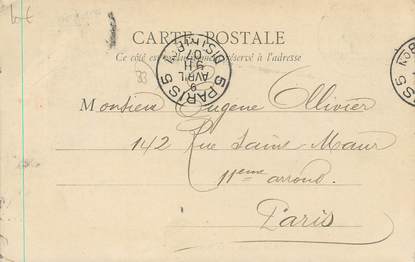 CARTE POSTALE
Ce côté est exclusivement réservé à l'adresse
PARIS 5
9
AVRIL
07
33
Monsieur Eugene Ollivier
142 Rue Saint Maur
11eme arrond.
Paris